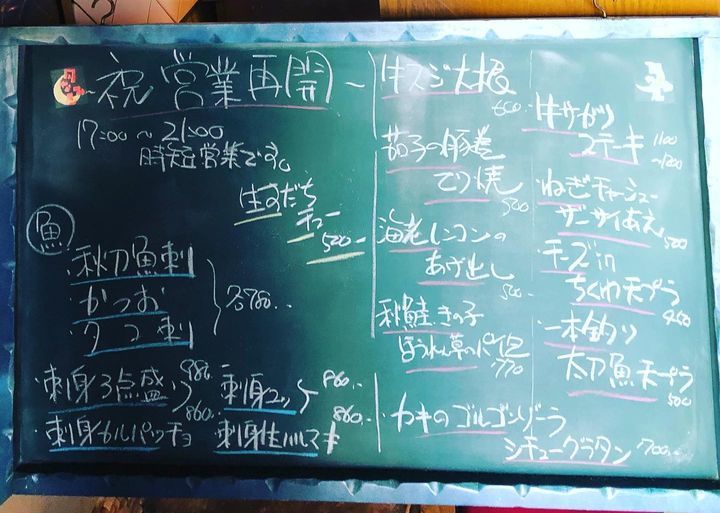 祝 営業再開〜
17:00〜21:00
時短営業です。
生すだち
チュー
500-
魚
秋刀魚刺
かつお
タコ刺
各780..
刺身3点盛り 980.
刺身ユッケ 860..
刺身カルパッチョ 860.
刺身生ハルマキ 860.
牛スジ大根
600.
茄子の豚巻
てり焼
500
海老しンコンの
あげ出し
500.
秋鮭きの子
ほうれん草のパイ包
770
牛サガリ
ステーキ 1100
〜1200
ねぎチャーシュー
ザーサイあえ
500
チーズin
ちくわ天プラ
450
一本釣り
太刀魚天プラ
500
カキのゴルゴンゾーラ
シチューグラタン 700..